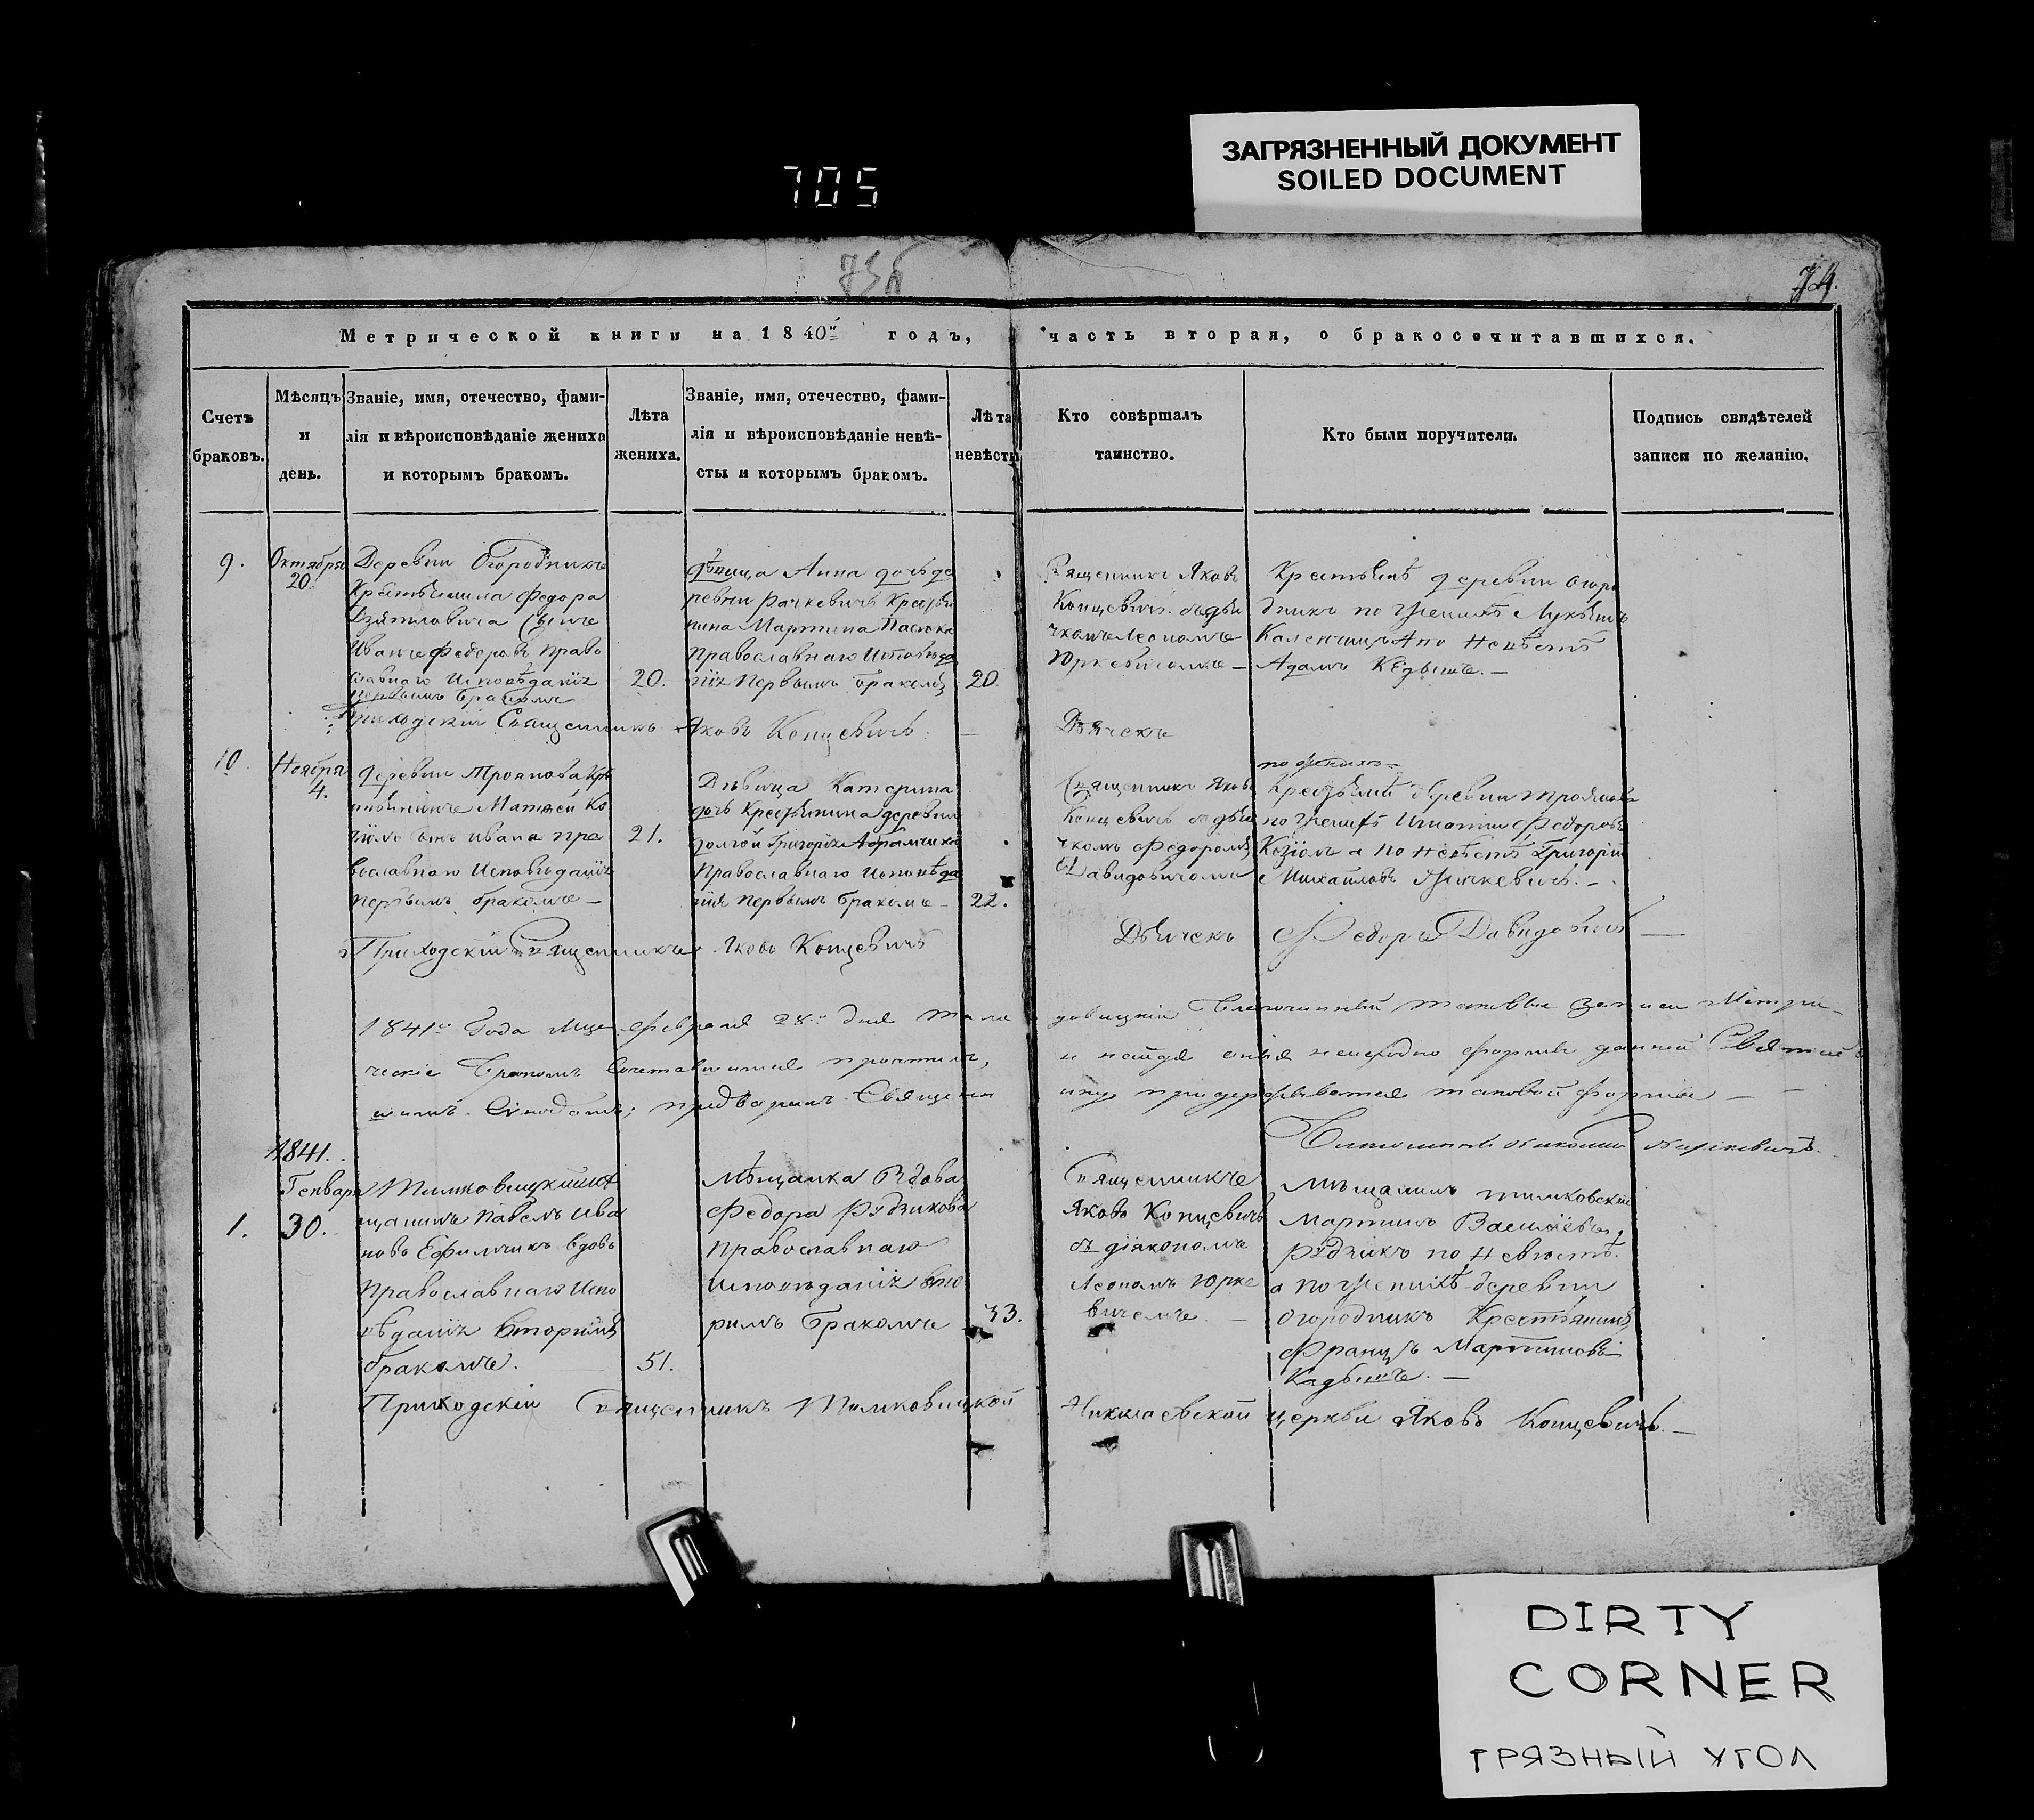 ЗАГРЯЗНЕННЫЙ ДОКУМЕНТ
SOILED DOCUMENT
705
74.
Метрической книги на 1840й годъ, часть вторая, о бракосочитавшихся.
Счетъ браковъ.
Мѣсяцъ и день.
Званіе, имя, отечество, фами-
лія и вѣроисповѣданіе жениха
и которымъ бракомъ.
Лѣта жениха.
Званіе, имя, отечество, фами-
лія и вѣроисповѣданіе невѣ-
сты и которымъ бракомъ.
Лѣта невѣсты
Кто совѣршалъ
таинство.
Кто были поручители.
Подпись свидѣтелей
записи по желанію.
9.
Октября
20.
Деревни Огородникъ
Крестьянина Федора
Сынъ
Иванъ Федоровъ Право
славнаго Исповѣданія
первымъ бракомъ
20.
дѣвица Анна дочь де
ревни Рачкевичъ Крестья
нина Мартина
Православнаго Исповѣда
нія Первымъ бракомъ
20.
Священникъ Яковъ
Концевичъ съ дья
чкомъ Леономъ
Юркевичомъ
Крестьянѣ деревни Огоро
дникъ по Женихѣ Лукьянъ
а по Невѣстѣ
Адамъ
Приходскій Священникъ Яковъ Концевичъ.
Дьячекъ
10.
Ноября
4.
деревни Троянова Кре
стьянинъ Матѳей Ко
зіолъ сынъ Ивана Пра
вославнаго Исповѣданія
первымъ бракомъ
21.
Дѣвица Катерина
дочь Крестьянина деревни
Долгой Григорія Абрамчика
Православнаго Исповѣда
нія первымъ бракомъ
22.
Священникъ Яковъ
Концевичъ съ дья
чкомъ Федоромъ
Давидовичомъ
Крестьянѣ деревни Троянова
по Женихѣ Игнатій Федоровъ
Козіолъ а по Невѣстѣ Григорій
Михайловъ
Приходскій Священникъ Яковъ Концевичъ
Дьячекъ Федоръ Давидовичъ
1841го Года Мца Февраля 28го дня
Благочинный таковыя записи Метри-
ческіе Бракомъ Сочетавшихся
и найдя оныя несходно формѣ данной Святѣй
шимъ Синодомъ; предварилъ Священни
придерживатся таковой формы
Благочинный
1841.
1.
Генваря
30.
Тимковицкій мѣ
щанинъ Павелъ Ива
новъ Ефимчикъ вдовъ
Православнаго Испо
вѣданія вторымъ
бракомъ.
51.
Мѣщанка Вдова
Федора Рудзикова
Православнаго
Исповѣданія вто
римъ бракомъ
33.
Священникъ
Яковъ Концевичъ
съ діякономъ
Леономъ Юрке
вичемъ
Мѣщанинъ тимковскій
Мартинъ Васильевъ
Рудзикъ по Невѣстѣ.
а по Женихѣ деревни
Огородникъ Крестьянинъ
Францъ Мартиновъ
Кадышъ.
Приходскій Священникъ Тимковицкой Николаевской церкви Яковъ Концевичъ.
DIRTY
CORNER
ГРЯЗНЫЙ УГОЛ